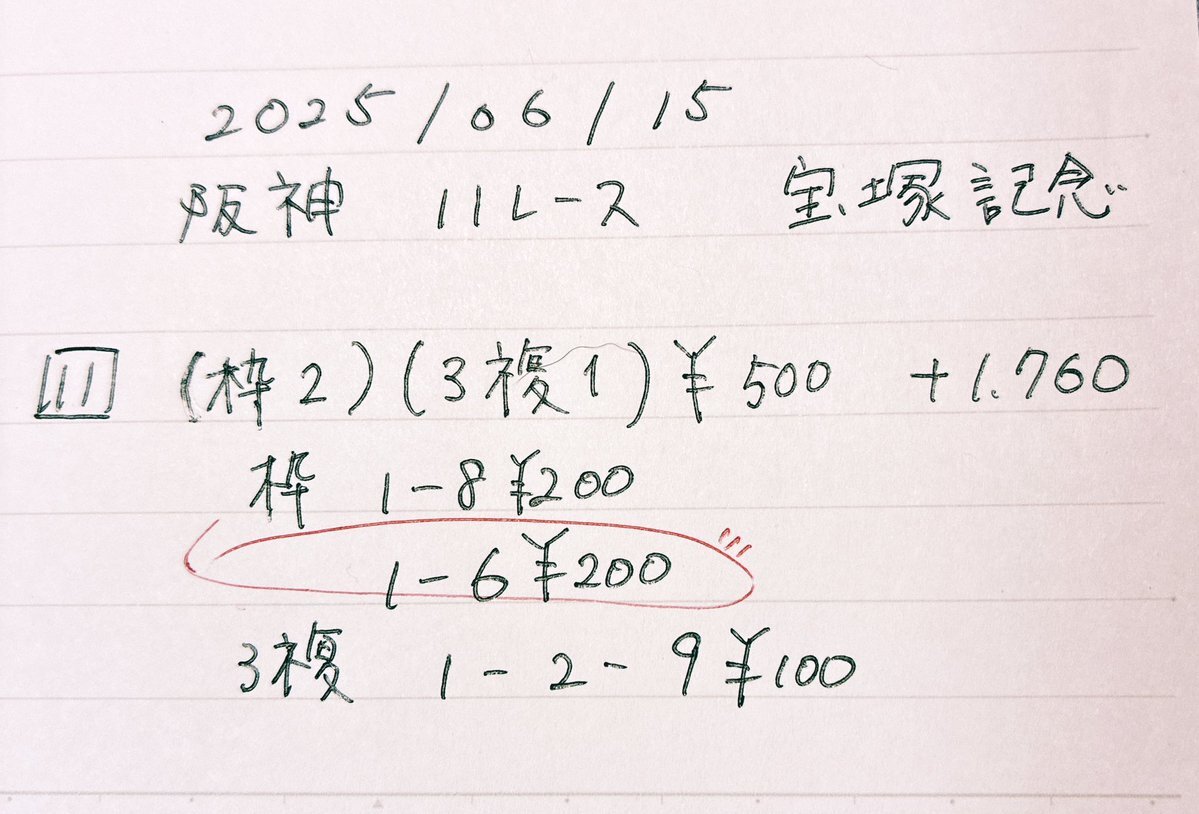 2025/06/15
阪神 11レース 宝塚記念
11 (枠2)(3複1)¥500 +1.760
枠 1-8¥200
1-6¥200
3複 1-2-9¥100